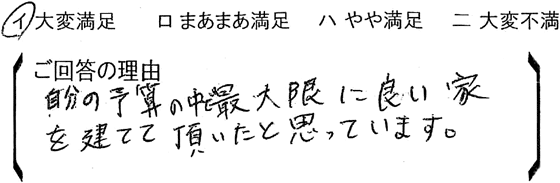 イ 大変満足 ロ まあまあ満足 ハ やや満足 ニ 大変不満
ご回答の理由
自分の予算の中で最大限に良い家
を建てて頂いたと思っています。